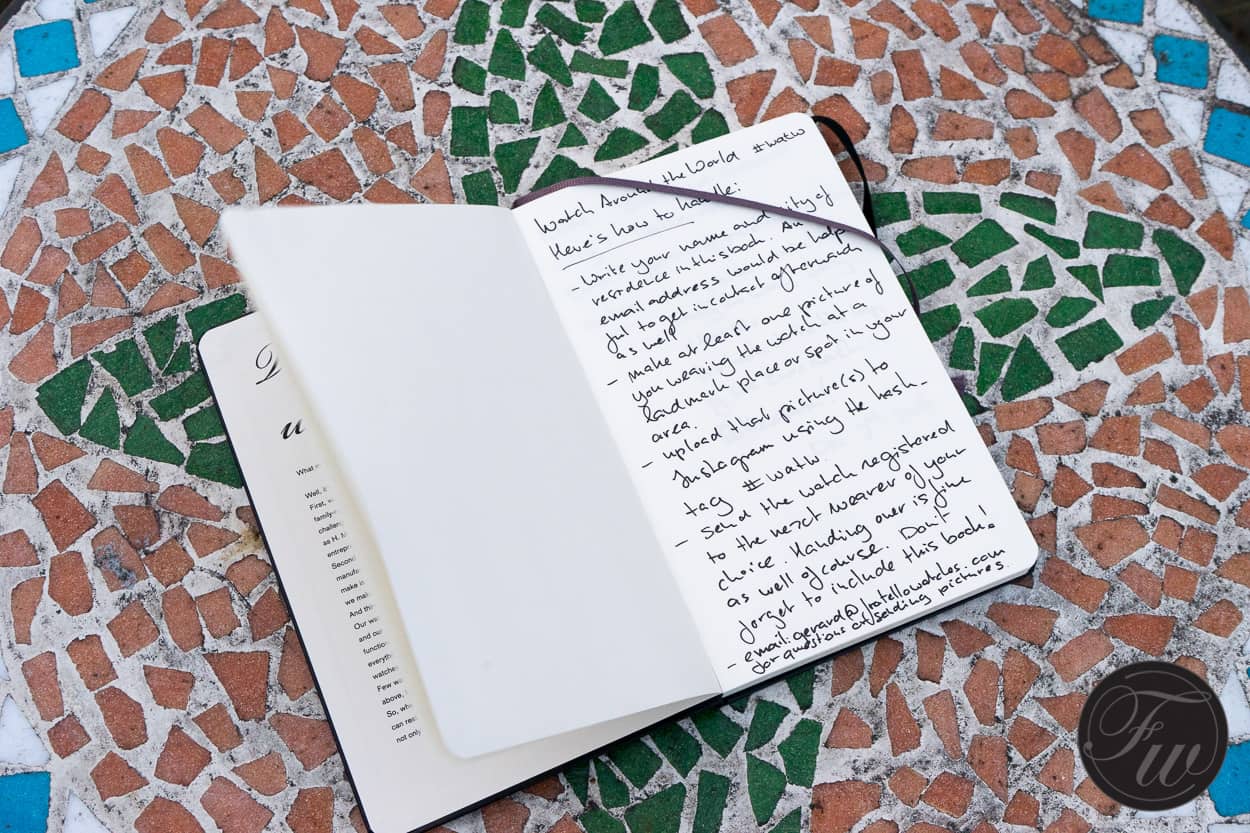 What
Well,
First,
family
challen
as H.
entrepr
Second
manufa
make
we mak
And th
Our wa
and ou
functio
everyth
watche
Few w
above,
So, wh
can res
not only
Watch Around the World #watw
Here's how to handle:
- Write your name and city of
residence in this book. An
email address would be help
ful to get in contact afterwards
as well
- Make at least one picture of
you wearing the watch at a
landmark place or spot in your
area.
- upload that picture(s) to
Instagram using the hash-
tag #watw
- Send the watch registered
to the next wearer of your
choice. Handing over is fine
as well of course. Don't
forget to include this book!
- email: gerard@fratellowatches.com
for questions or sending pictures.
FW